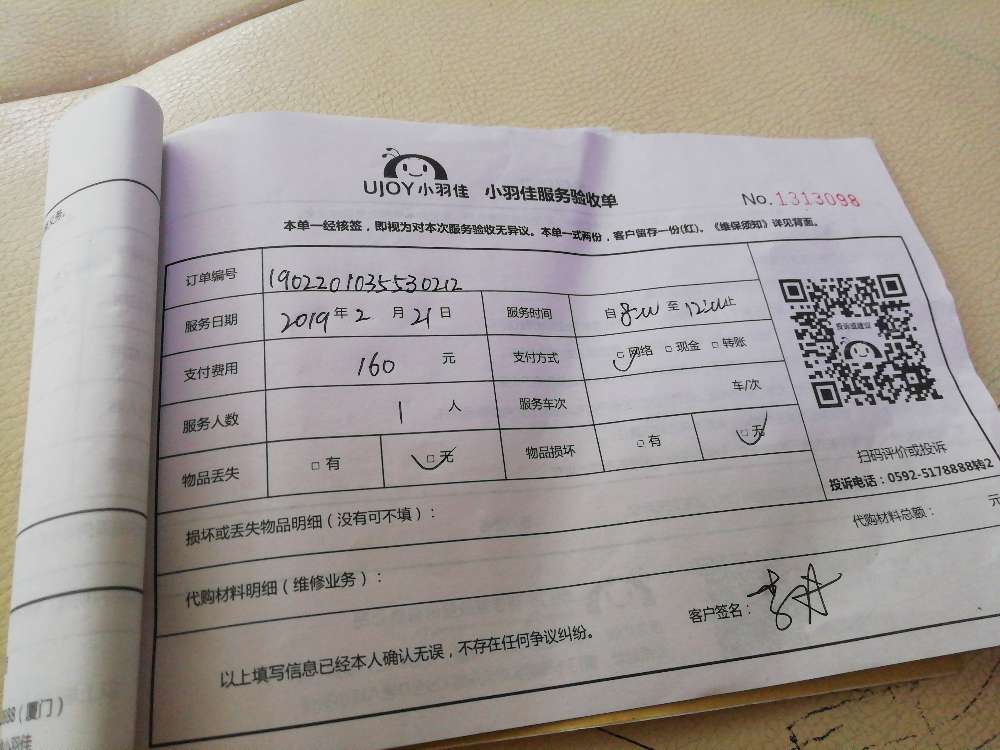 UJOY小羽佳 小羽佳服务验收单
No.1313098
本单一经核签，即视为对本次服务验收无异议。本单一式两份，客户留存一份(红)。《维保须知》详见背面。
订单编号 1902201035530212
服务日期 2019年2月21日 服务时间 自8:00至12:00止
支付费用 160元 支付方式 □网络 □现金 □转账
服务人数 1人 服务车次 车/次
物品丢失 □有 □无 物品损坏 □有 □无
投诉或建议
扫码评价或投诉
投诉电话：0592-5178888转2
损坏或丢失物品明细（没有可不填）：
代购材料总额： 元
代购材料明细（维修业务）：
客户签名：
以上填写信息已经本人确认无误，不存在任何争议纠纷。
88（厦门）
小羽佳